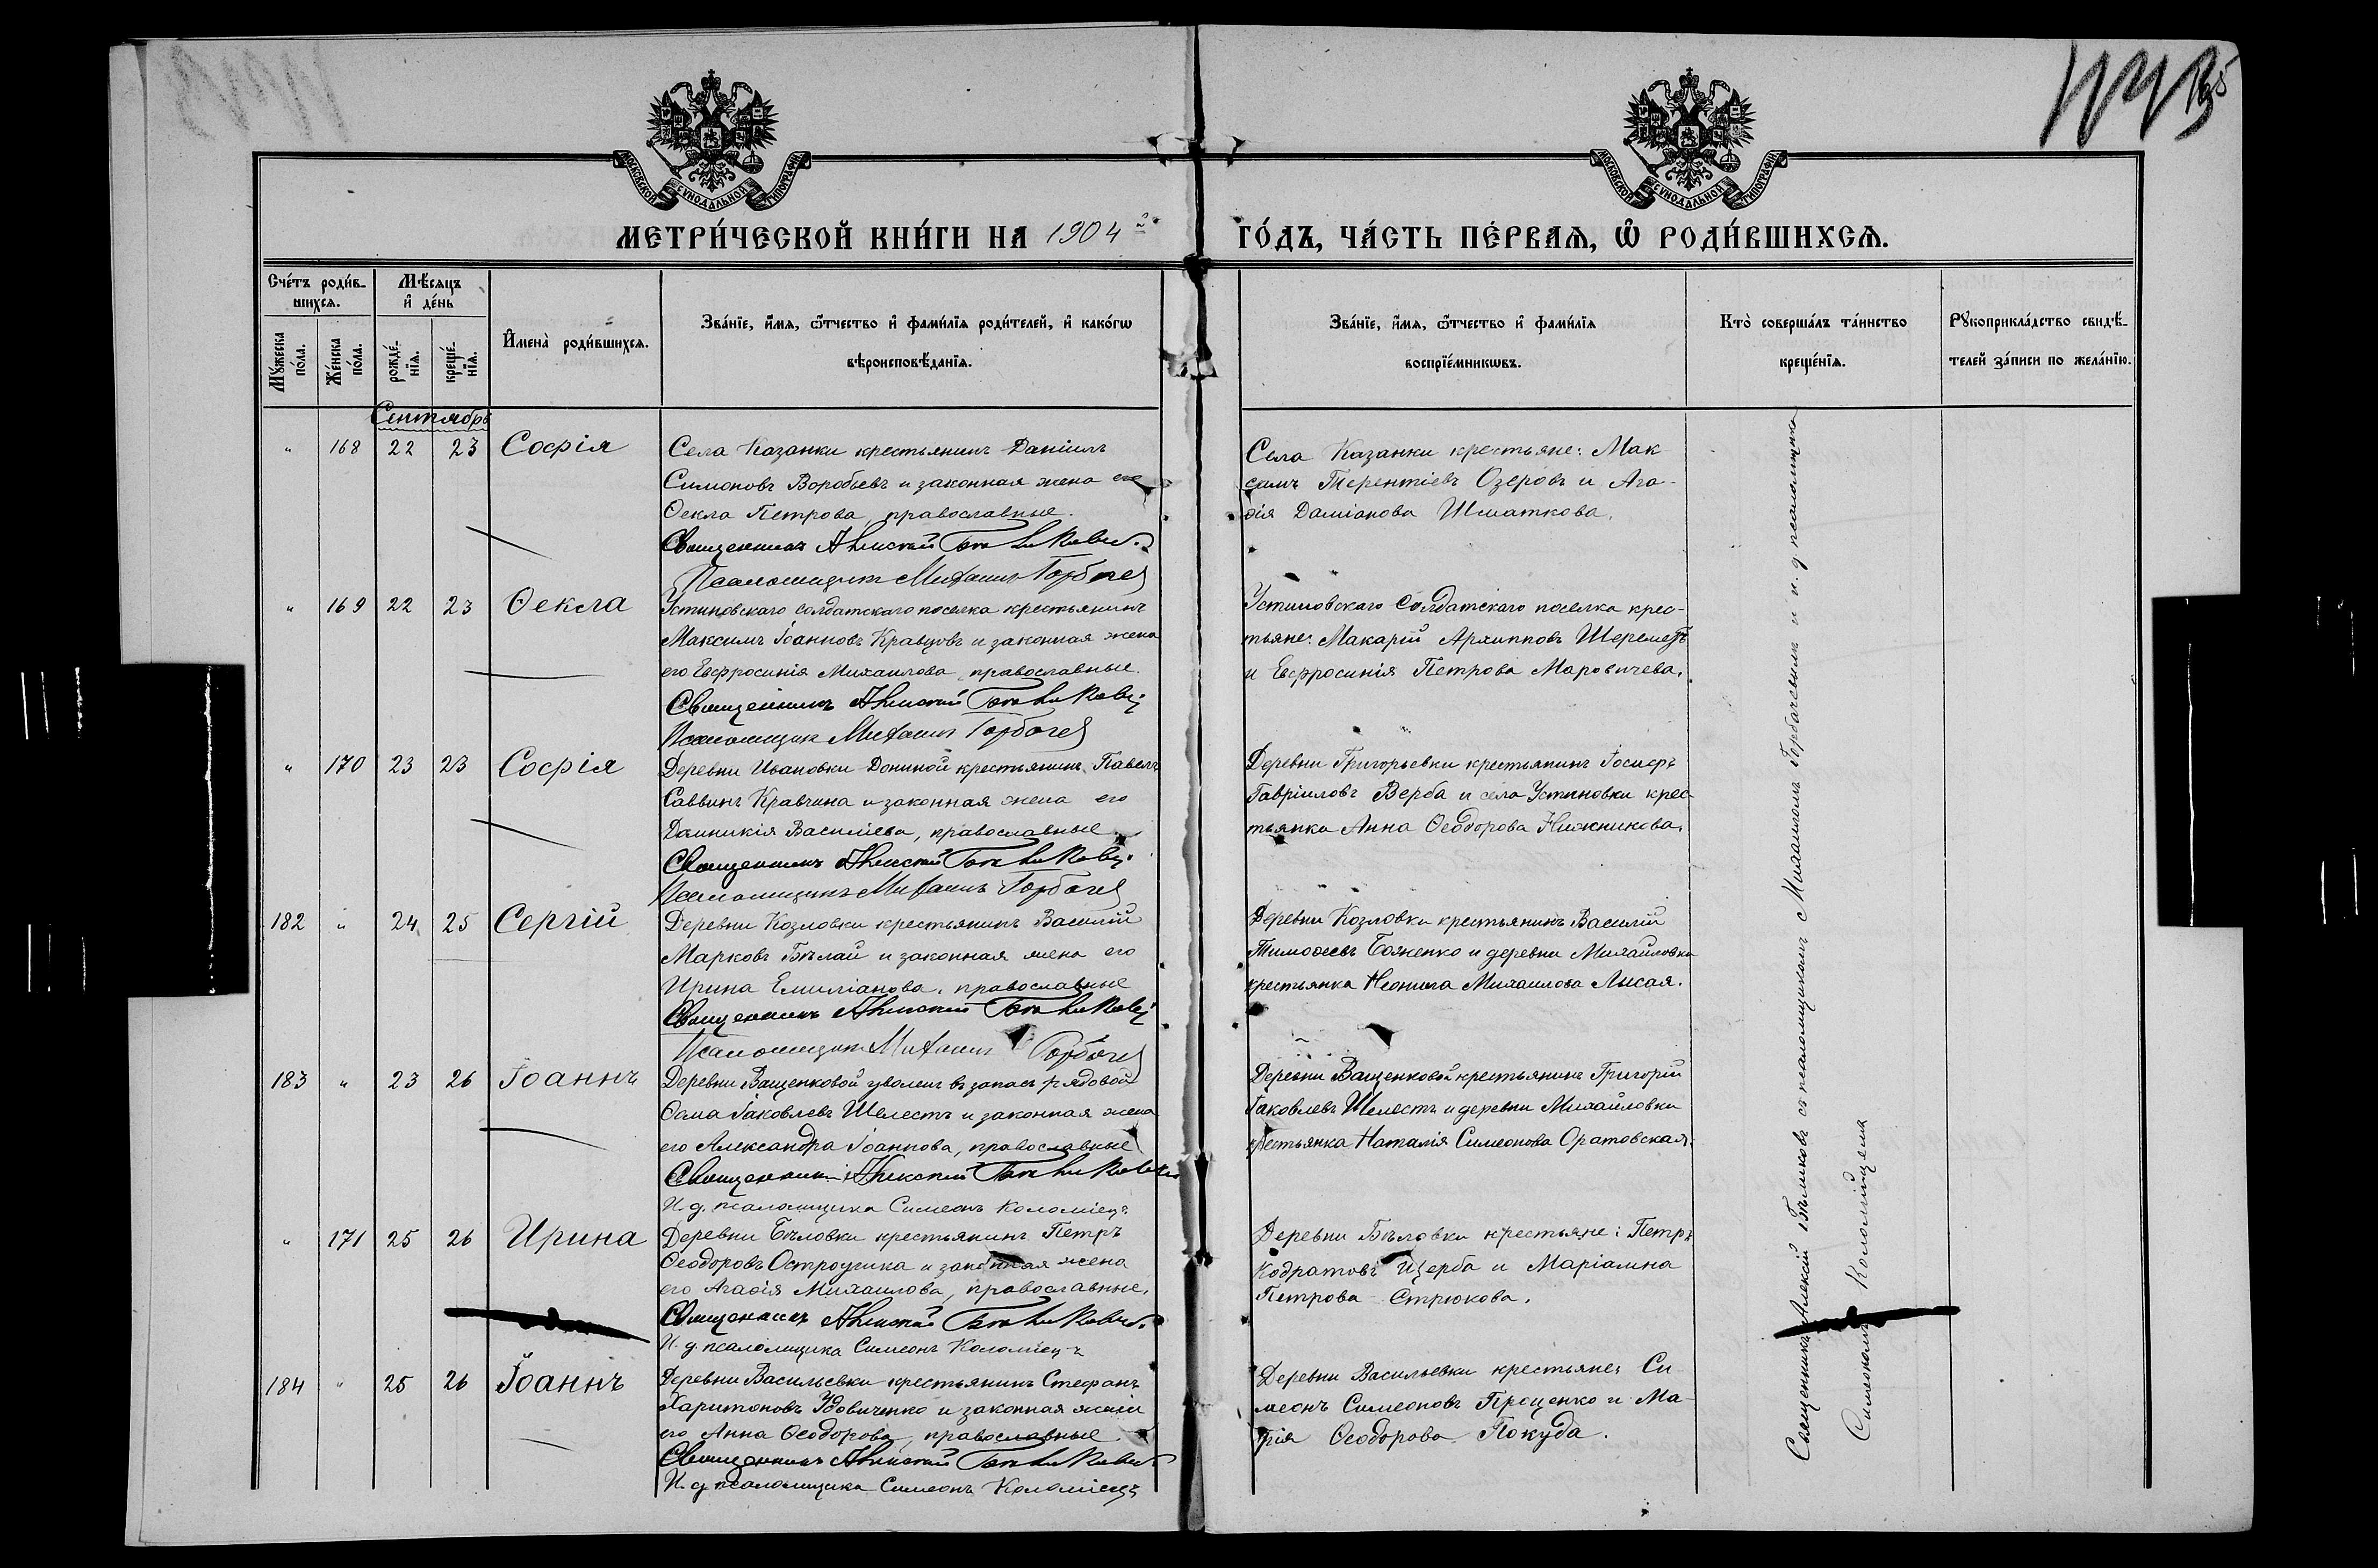 МОСКОВСКОЙ СѴНОДАЛЬНОЙ ТИПОГРАФІИ
МОСКОВСКОЙ СѴНОДАЛЬНОЙ ТИПОГРАФІИ
МЕТРИ́ЧЕСКОЙ КНИ́ГИ НА 1904 г.
ГО́ДЪ, ЧА́СТЬ ПЕ́РВАѦ, Ѡ҆ РОДИ́ВШИХСѦ.
Сче́тъ роди́в-
шихсѧ.
Мꙋ́жеска по́ла.
Же́нска по́ла.
Мѣ́сѧцъ
и҆ де́нь
рожде́-
нїѧ.
креще́-
нїѧ.
И҆мена̀ роди́вшихсѧ.
Зва́нїе, и҆́мѧ, ѻ҆́тчество и҆ фами́лїѧ роди́телей, и҆ како́гѡ
вѣроисповѣ́данїѧ.
Зва́нїе, и҆́мѧ, ѻ҆́тчество и҆ фами́лїѧ
воспрїе́мникѡвъ.
Кто̀ соверша́лъ та́инство
креще́нїѧ.
Рꙋкоприкла́дство свидѣ́-
телей за́писи по жела́нїю.
Сентябрь
" 168 22 23 Софія
Села Казанки крестьянинъ Даніилъ
Симоновъ Воробьевъ и законная жена его
Ѳекла Петрова, православные.
Священникъ Алексій
Псаломщикъ Михаилъ Горбачев
Села Казанки крестьяне: Мак-
симъ Терентіевъ Озеровъ и Ага-
ѳія Даміанова Шматкова.
" 169 22 23 Ѳекла
Устиновскаго Солдатскаго поселка крестьянинъ
Максимъ Іоанновъ Кравцовъ и законная жена
его Евфросинія Михаилова, православные.
Священникъ Алексій
Псаломщик Михаилъ Горбачев
Устиновскаго Солдатскаго поселка крес-
тьяне: Макарій Архипповъ Шереметъ
и Евфросинія Петрова Маровичева.
" 170 23 23 Софія
Деревни Ивановки Дониной крестьянинъ Павелъ
Саввинъ Кравчина и законная жена его
Домникія Василіева, православные
Священникъ Алексій
Псаломщикъ Михаилъ Горбачев
Деревни Григорьевки крестьянинъ Іосифъ
Гавріиловъ Верба и села Устиновки крес-
тьянка Анна Ѳеодорова Нижникова.
182 " 24 25 Сергій
Деревни Козловки крестьянинъ Василій
Марковъ Бѣлай и законная жена его
Ирина Емиліанова, православные
Священникъ Алексій
Псаломщикъ Михаилъ Горбачев
Деревни Козловки крестьянинъ Василій
Тимоѳеевъ Боженко и деревни Михайловки
крестьянка Неонила Михаилова Лысая.
183 " 23 26 Іоаннъ
Деревни Ващенковой уволен. въ запасъ рядовой
Ѳома Іаковлевъ Шелестъ и законная жена
его Александра Іоаннова, православные
Священникъ Алексій
И. д. псаломщика Симеонъ Коломіецъ
Деревни Ващенковой крестьянинъ Григорій
Іаковлевъ Шелестъ и деревни Михайловки
крестьянка Наталія Симеонова Оратовская.
" 171 25 26 Ирина
Деревни Бѣловки крестьянинъ Петръ
Ѳеодоровъ Остроушка и законная жена
его Агаѳія Михаилова, православные.
Священникъ Алексій
И. д. псаломщика Симеонъ Коломіецъ
Деревни Бѣловки крестьяне: Петръ
Кодратовъ Щерба и Маріамна
Петрова Стрюкова.
184 " 25 26 Іоаннъ
Деревни Васильевки крестьянинъ Стефанъ
Харитоновъ Удовиченко и законная жена
его Анна Ѳеодорова, православные
Священникъ Алексій
И. д. псаломщика Симеонъ Коломіецъ
Деревни Васильевки крестьяне: Си-
меонъ Симеоновъ Проценко и Ма-
рія Ѳеодорова Покуда.
Священникъ Алексій съ псаломщикомъ Михаиломъ Горбачевымъ и и. д. псаломщика
Симеономъ Коломійцемъ